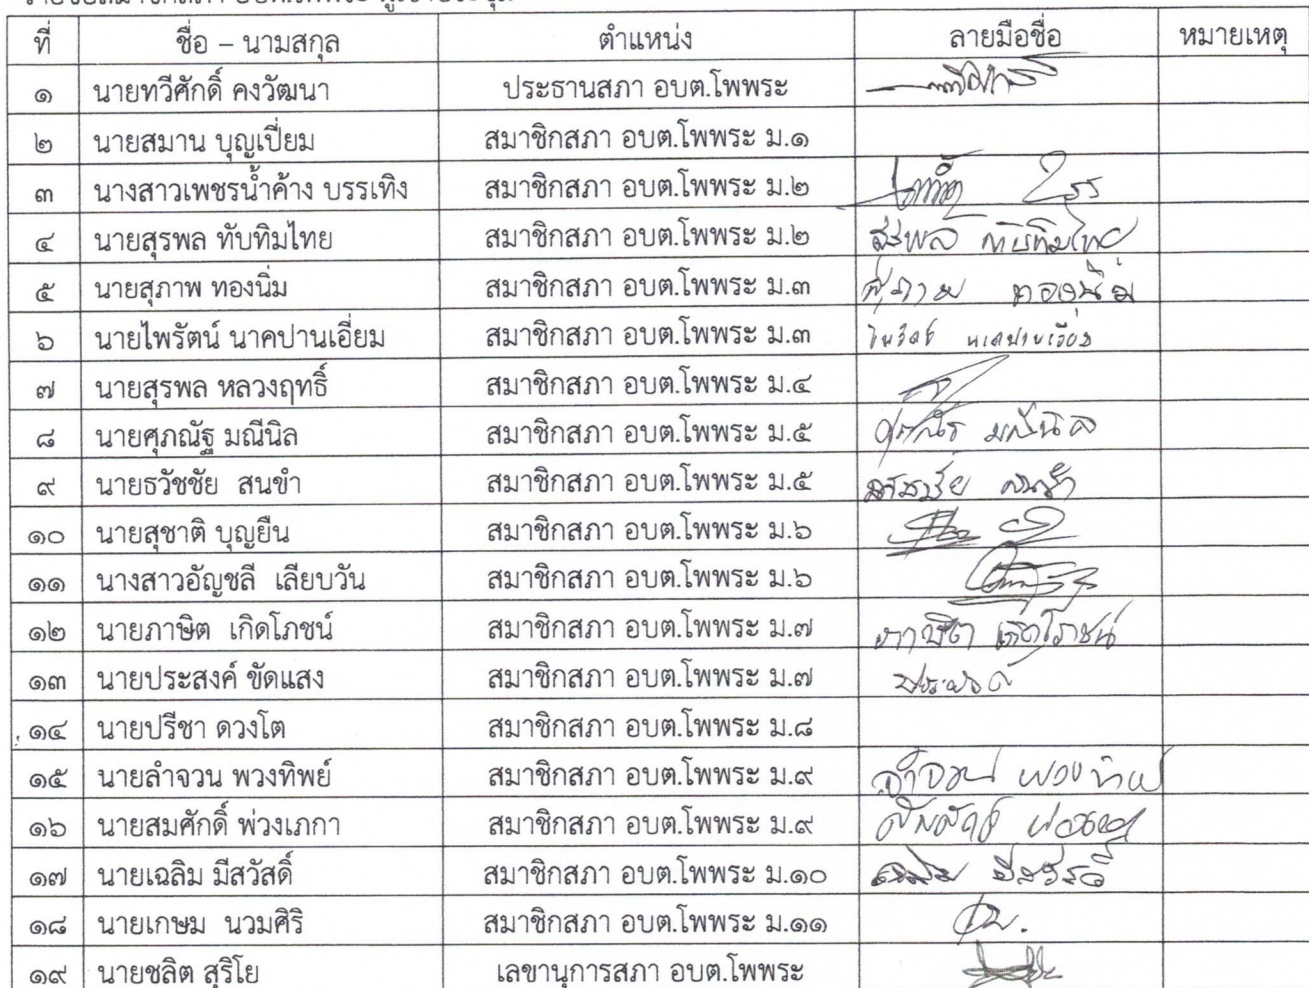 ที่ ชื่อ – นามสกุล ตำแหน่ง ลายมือชื่อ หมายเหตุ
๑ นายทวีศักดิ์ คงวัฒนา ประธานสภา อบต.โพพระ
๒ นายสมาน บุญเปี่ยม สมาชิกสภา อบต.โพพระ ม.๑
๓ นางสาวเพชรน้ำค้าง บรรเทิง สมาชิกสภา อบต.โพพระ ม.๒
๔ นายสุรพล ทับทิมไทย สมาชิกสภา อบต.โพพระ ม.๒ สุรพล ทับทิมไทย
๕ นายสุภาพ ทองนิ่ม สมาชิกสภา อบต.โพพระ ม.๓ สุภาพ ทองนิ่ม
๖ นายไพรัตน์ นาคปานเอี่ยม สมาชิกสภา อบต.โพพระ ม.๓ ไพรัตน์ นาคปานเอี่ยม
๗ นายสุรพล หลวงฤทธิ์ สมาชิกสภา อบต.โพพระ ม.๔
๘ นายศุภณัฐ มณีนิล สมาชิกสภา อบต.โพพระ ม.๕ ศุภณัฐ มณีนิล
๙ นายธวัชชัย สนขำ สมาชิกสภา อบต.โพพระ ม.๕ ธวัชชัย สนขำ
๑๐ นายสุชาติ บุญยืน สมาชิกสภา อบต.โพพระ ม.๖
๑๑ นางสาวอัญชลี เลียบวัน สมาชิกสภา อบต.โพพระ ม.๖
๑๒ นายภาษิต เกิดโภชน์ สมาชิกสภา อบต.โพพระ ม.๗ ภาษิต เกิดโภชน์
๑๓ นายประสงค์ ขัดแสง สมาชิกสภา อบต.โพพระ ม.๗ ประสงค์
๑๔ นายปรีชา ดวงโต สมาชิกสภา อบต.โพพระ ม.๘
๑๕ นายลำจวน พวงทิพย์ สมาชิกสภา อบต.โพพระ ม.๙ ลำจวน พวงทิพย์
๑๖ นายสมศักดิ์ พ่วงเภกา สมาชิกสภา อบต.โพพระ ม.๙
๑๗ นายเฉลิม มีสวัสดิ์ สมาชิกสภา อบต.โพพระ ม.๑๐ เฉลิม มีสวัสดิ์
๑๘ นายเกษม นวมศิริ สมาชิกสภา อบต.โพพระ ม.๑๑
๑๙ นายชลิต สุริโย เลขานุการสภา อบต.โพพระ